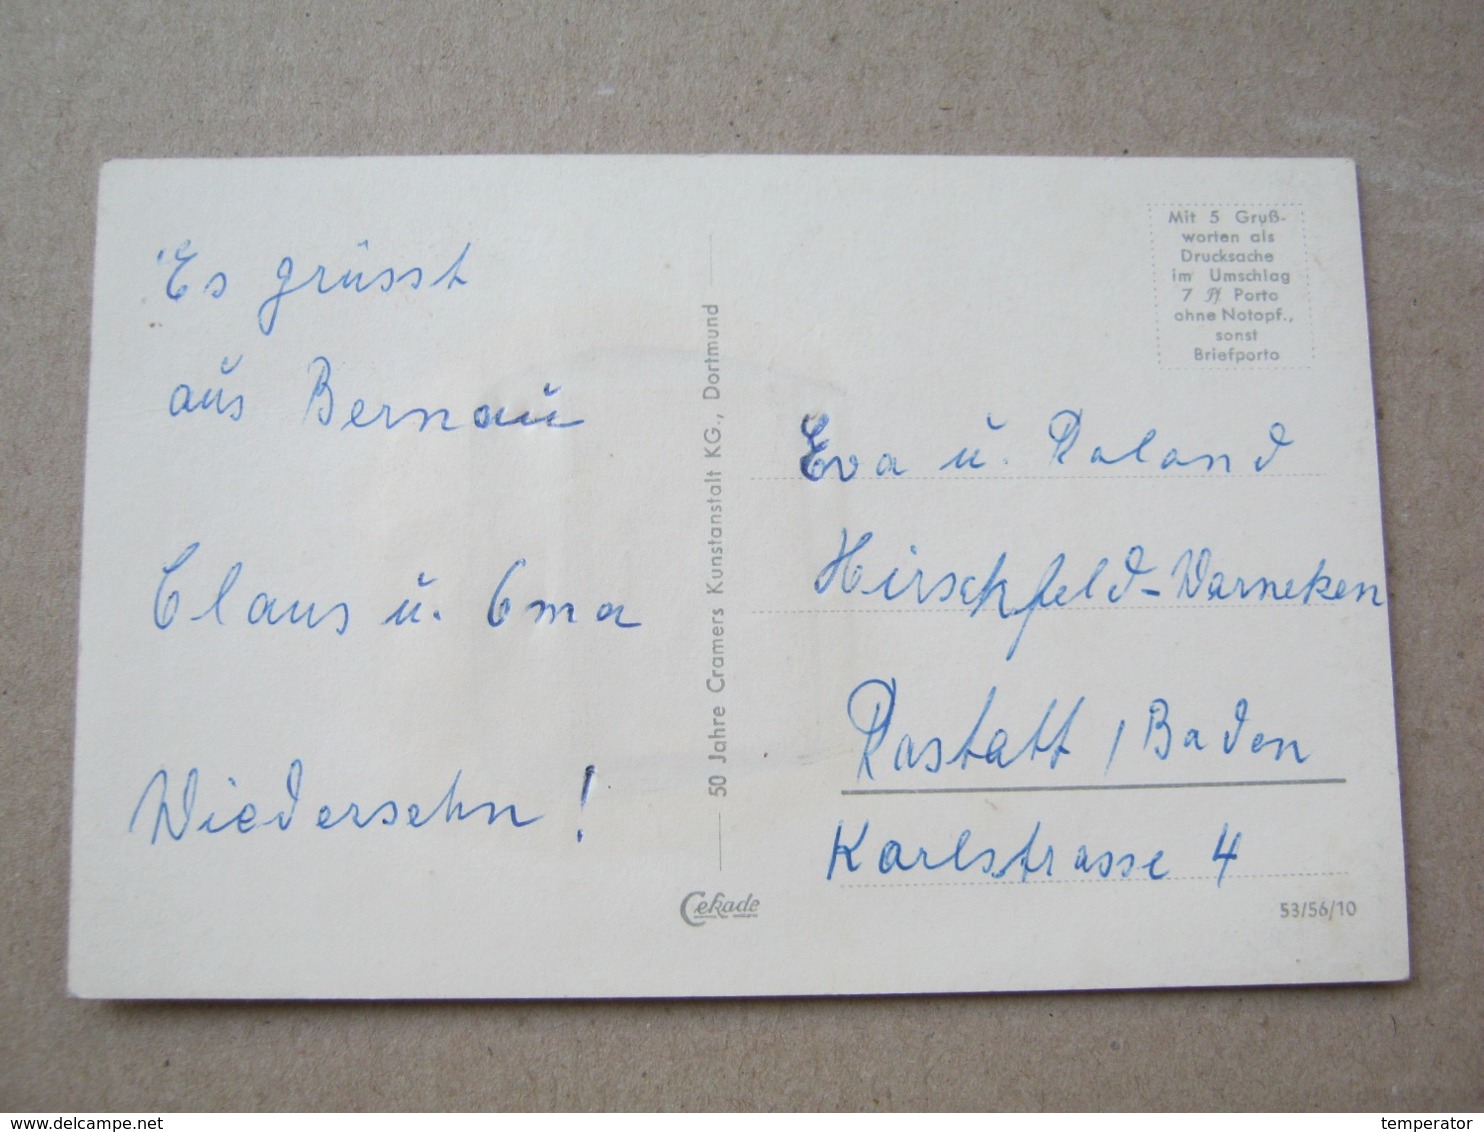 Es grüsst
aus Bernau
Claus u. Oma
Wiedersehn!
50 Jahre Cramers Kunstanstalt KG., Dortmund
Cekade
Mit 5 Gruß-
worten als
Drucksache
im Umschlag
7 Pf Porto
ohne Notopf.,
sonst
Briefporto
Eva u. Roland
Hirschfeld-Warneken
Rastatt / Baden
Karlstrasse 4
53/56/10
© delcampe.net
temperator